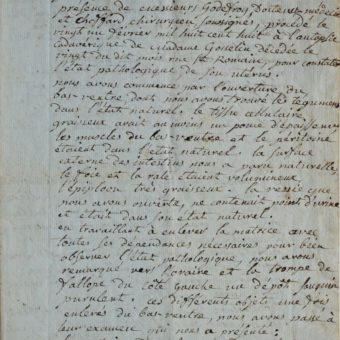 présence de messieurs Godefroy Docteur médecin
et chirurgien soussignés, procédé le
vingt un février mil huit cent huit à l'autopsie
cadaverique de Madame Gosselin décédée le
vingt du dit mois rue St Romain, pour constater
l'état pathologique de son uterus.
nous avons commencé par l'ouverture du
bas ventre dont nous avons trouvé les tégumens
dans l'état naturel. le tissu cellulaire
graisseux avait au moins un pouce d'épaisseur
les muscles du bas ventre et le péritoine
étoient dans l'état naturel. la surface
externe des intestins nous a paru naturelle
le foie et la rate étoient volumineux
l'épiploon très graisseux. la vessie que
nous avons ouverte, ne contenait point d'urine
et était dans son état naturel.
en travaillant à enlever la matrice avec
toutes ses dépendances nécessaires pour bien
observer l'état pathologique, nous avons
remarqué vers l'ovaire et la trompe de
fallope du côté gauche un dépôt
purulent. ces différens objets une fois
enlevés du bas ventre, nous avons passé à
leur examen qui nous a présenté: